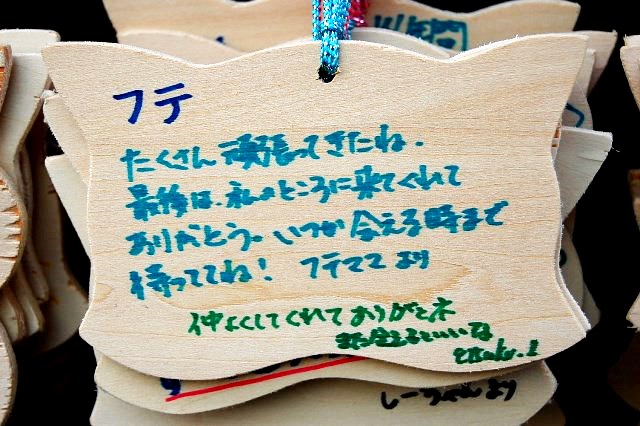 フテ
たくさん頑張ってきたね.
最後は、私のところに来てくれて
ありがとう。いつか会える時まで
待っててね! フテママより
仲よくしてくれてありがとネ
また会えるといいな
しーちゃんより